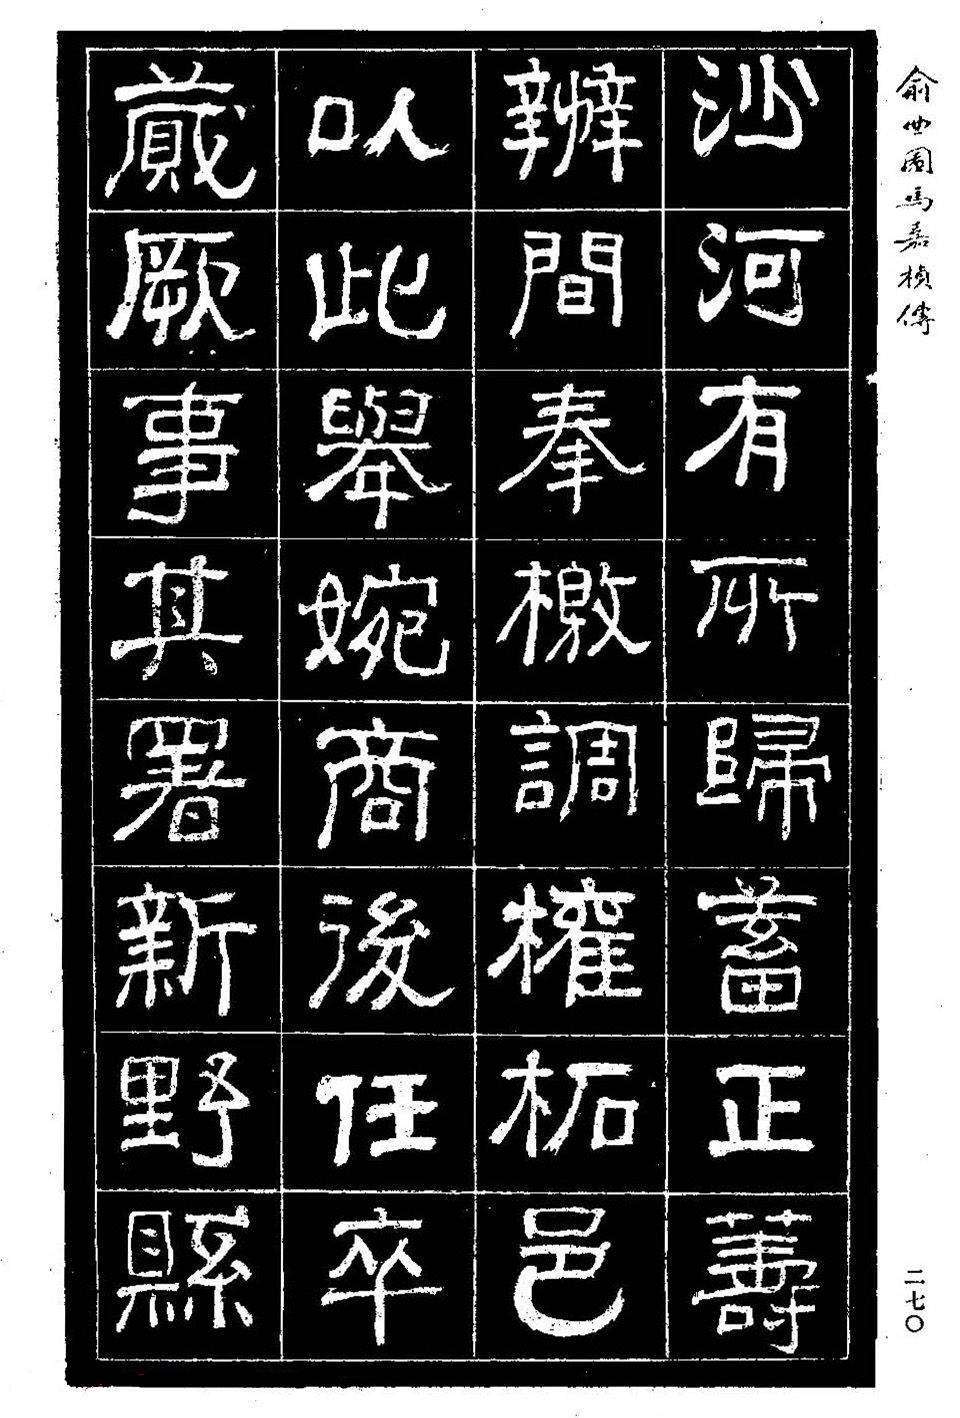 俞曲園馬嘉楨傳
沙河有所歸蓄正籌
辦間奉檄調權柘邑
以此舉婉商後任卒
蕆厥事其署新野縣
二七〇